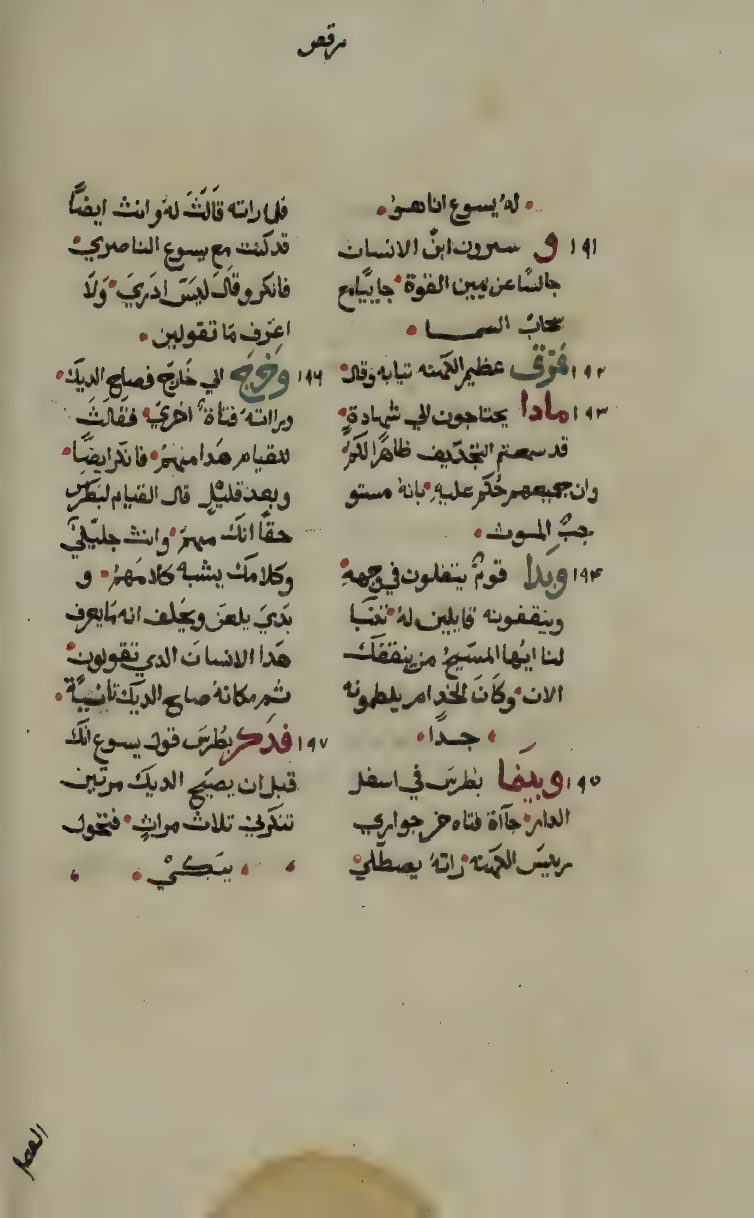 مرقص
له يسوع انا هو
١٩١ و سترون ابن الانسان
جالسًا عن يمين القوة جاييًا مع
سحاب السما
١٩٢ فمزق عظيم الكهنه تيابه وقال
١٩٣ مادا يحتاجون الي شهادة
قد سمعتم التجديف ظاهرًا لكم
وان جميعهم حُكم عليه بانه مستو
جبٌ الموت
١٩٤ وبدا قومٌ يتفلون في وجهه
وينقفونه قايلين له تنبّا
لنا ايها المسيح من ينقفك
الان وكان الخدام يلطمونه
جدًا
١٩٥ وبينما بطرس في اسفل
الدار جآاة فتاه من جواري
رييس الكهنه راته يصطلي
فلما راته قالت له وانت ايضًا
قد كنت مع يسوع الناصري
فانكر وقال ليس ادري ولا
اعرف ما تقولين
١٩٦ وخرج الي خارج فصاح الديك
وراته فتاة اخري فقالت
للقيام هدا منهم فانكر ايضًا
وبعد قليل قال القيام لبطرس
حقًا انك منهم وانت جليلي
وكلامك يشبه كلامهم و
بدي يلعن ويحلف انه ما يعرف
هدا الانسان الدي تقولون
تم مكانه صاح الديك تانيية
١٩٧ فدكر بطرس قول يسوع انك
قبل ان يصيح الديك مرتين
تنكرني تلات مرات فتحول
يبكي